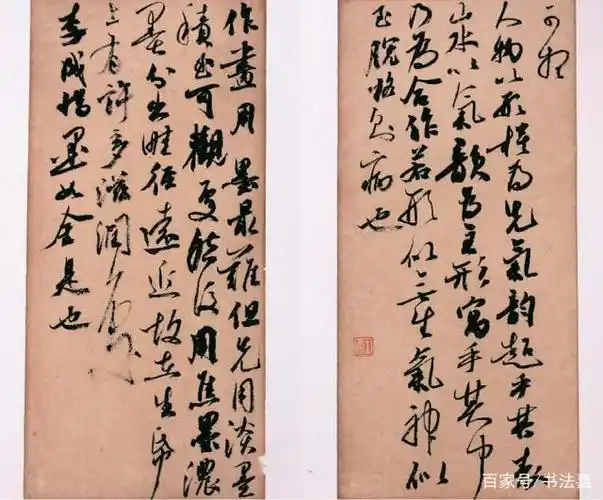 人物以形模為先氣韻超乎其表
山水以氣韻為主形寓乎其中
乃為合作若形似無生氣神似
至脫格則病也
作畫用墨最難但先用淡墨
積至可觀處然後用焦墨濃
墨分出畦徑遠近故在生紙
上有許多滋潤處
李成惜墨如金是也
百家号/书法嘉